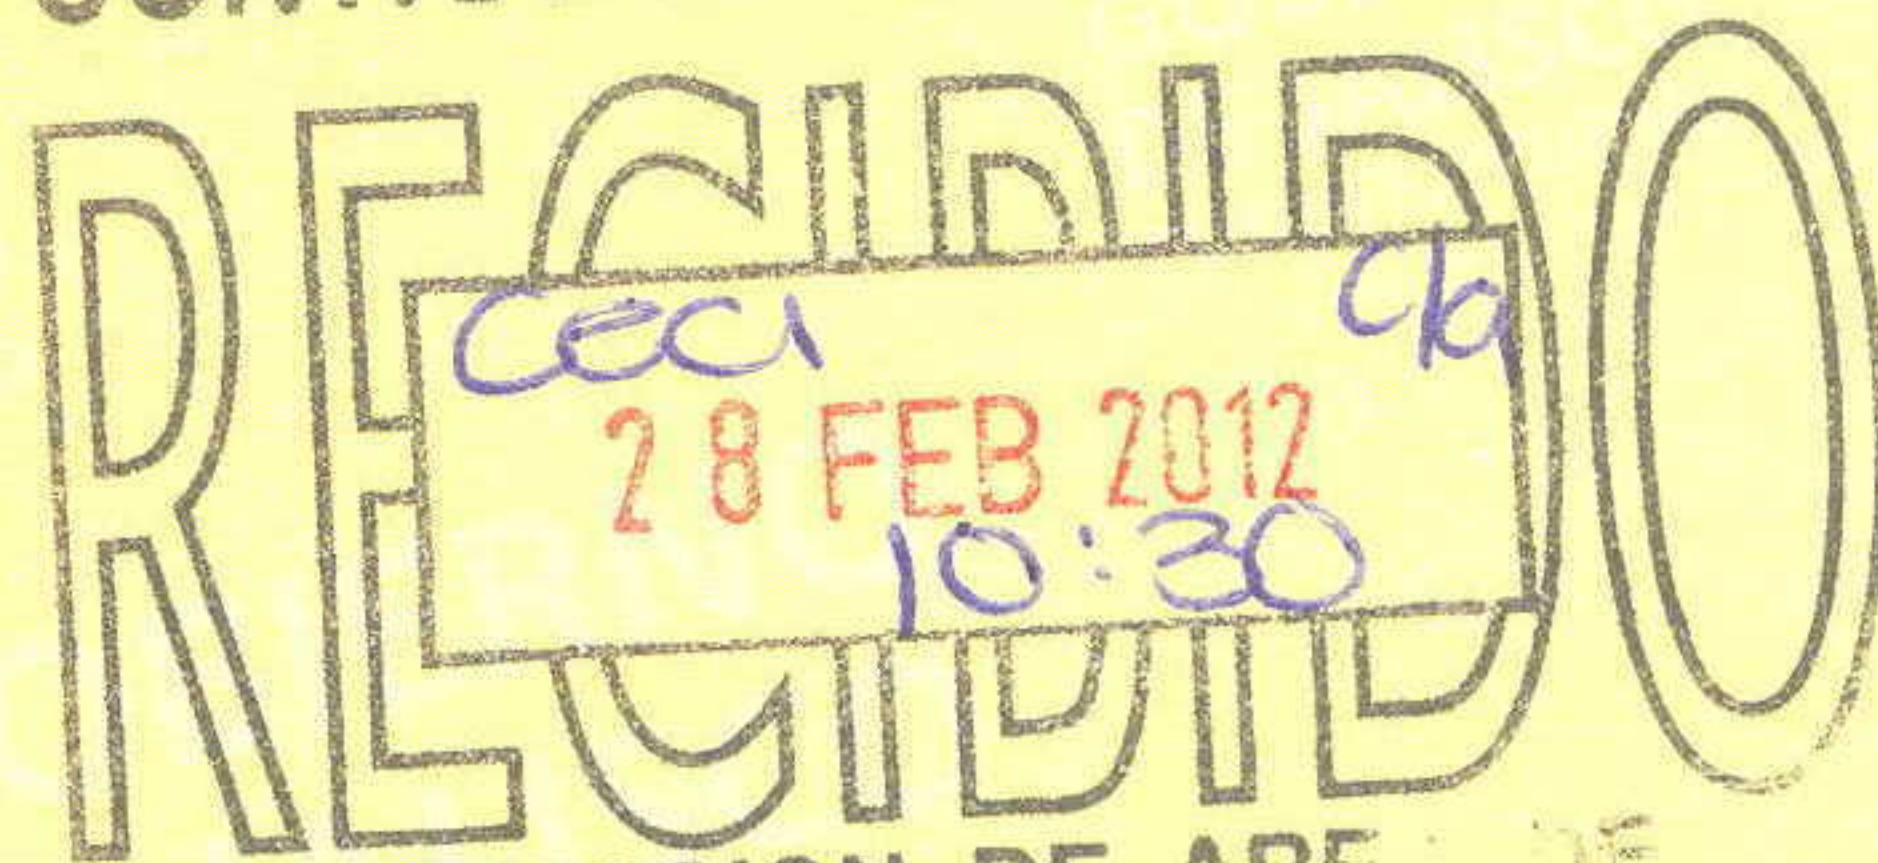 RECIBIDO
Ceci c/a
28 FEB 2012
10:30
DE